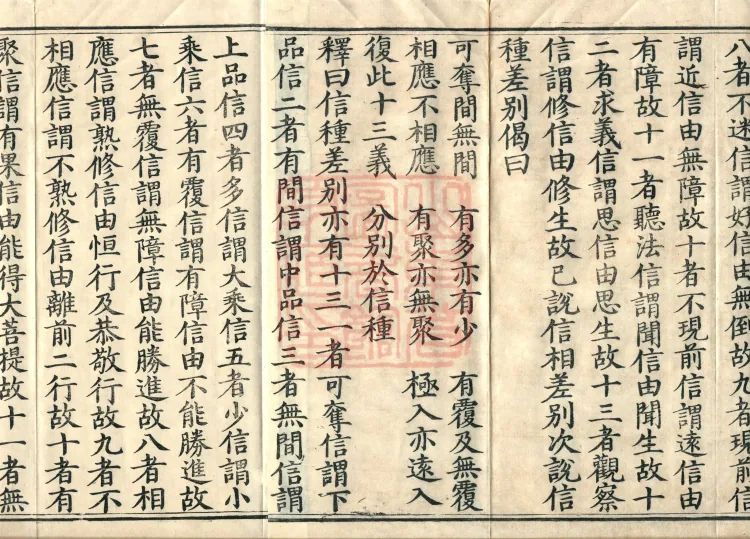 八者不迷信謂好信由無倒故九者現前信
謂近信由無障故十者不現前信謂遠信由
有障故十一者聽法信謂聞信由聞生故十
二者求義信謂思信由思生故十三者觀察
信謂修信由修生故已說信相差別次說信
種差別偈曰
可奪間無間　有多亦有少　有覆及無覆
相應不相應　有聚亦無聚　極入亦遠入
復此十三義　分別於信種
釋曰信種差別亦有十三一者可奪信謂下
品信二者有間信謂中品信三者無間信謂
上品信四者多信謂大乘信五者少信謂小
乘信六者有覆信謂有障信由不能勝進故
七者無覆信謂無障信由能勝進故八者相
應信謂熟修信由恒行及恭敬行故九者不
相應信謂不熟修信由離前二行故十者有
聚信謂有果信由能得大菩提故十一者無